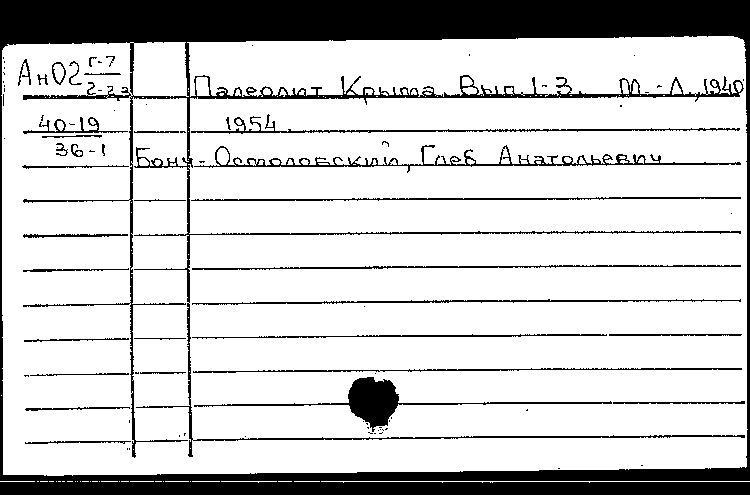 АнО2 Г-7/2-2,3 Палеолит Крыма. Вып. 1-3. М.-Л., 1940
40-19/36-1 1954.
Бонч-Осмоловский, Глеб Анатольевич.